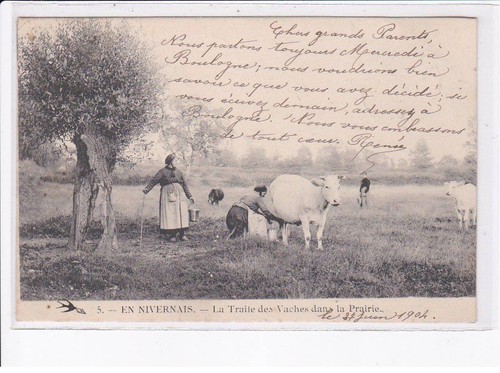 Chers grands Parents,
Nous partons toujours Mercredi à
Boulogne; nous voudrions bien
savoir ce que vous avez décidé; si
vous écrivez demain, adressez à
Boulogne. Nous vous embrassons
de tout cœur. Renée
5. — EN NIVERNAIS. — La Traite des Vaches dans la Prairie.
le juin 1904.